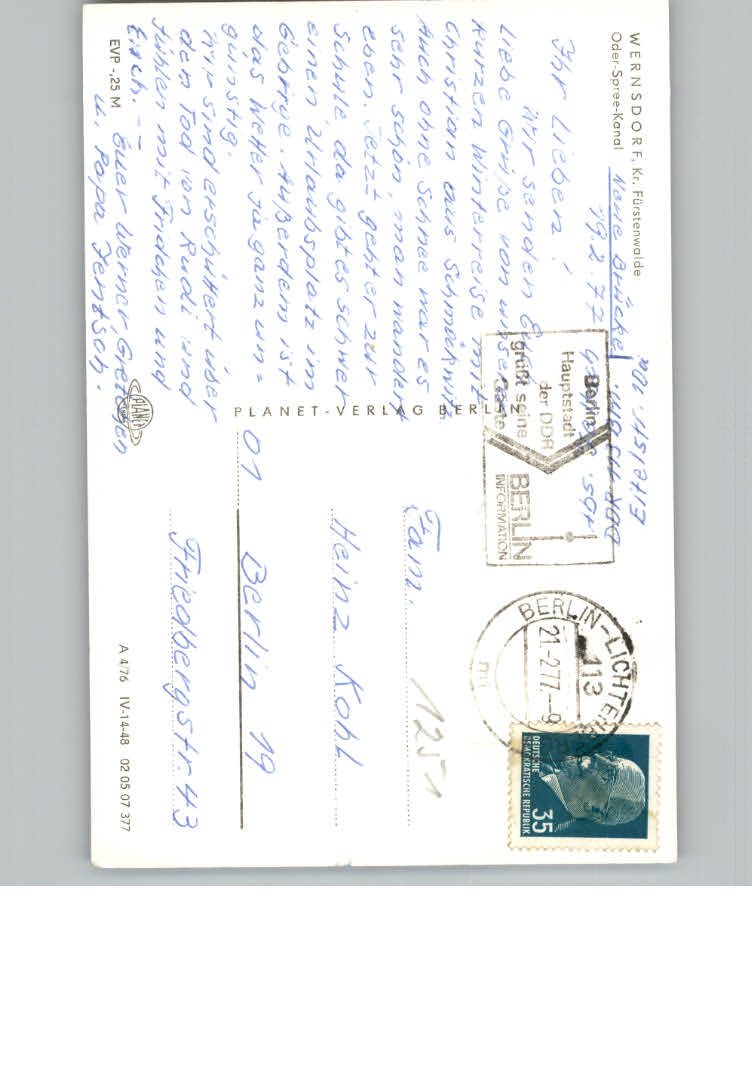 WERNSDORF, Kr. Fürstenwalde
Oder-Spree-Kanal
Neue Brücke
19.2.77
Ihr Lieben!
Wir senden Euch
Liebe Grüße von unserer
kurzen Winterreise mit
Christian aus Schmöckwitz
Auch ohne Schnee war es
sehr schön, man wandert
eben. Jetzt geht er zur
Schule, da gibt es schwer
einen Urlaubsplatz im
Gebirge. Außerdem ist
das Wetter ja ganz un-
günstig.
Wir sind erschüttert über
den Tod von Rudi und
fühlen mit Frdchen und
Euch. –
Euer Werner, Gretchen
u. Papa Jentzsch.
EVP -,25 M
PLANET
PLANET-VERLAG BERLIN
Berlin
Hauptstadt
der DDR
grüßt seine
Gäste
BERLIN
INFORMATION
BERLIN-LICHTENBERG
113
21.-2.77.-9
DEUTSCHE
DEMOKRATISCHE REPUBLIK
35
Fam.
1251
Heinz Kohl
01 Berlin 19
Friedbergstr. 43
A 4/76 IV-14-48 02 05 07 377